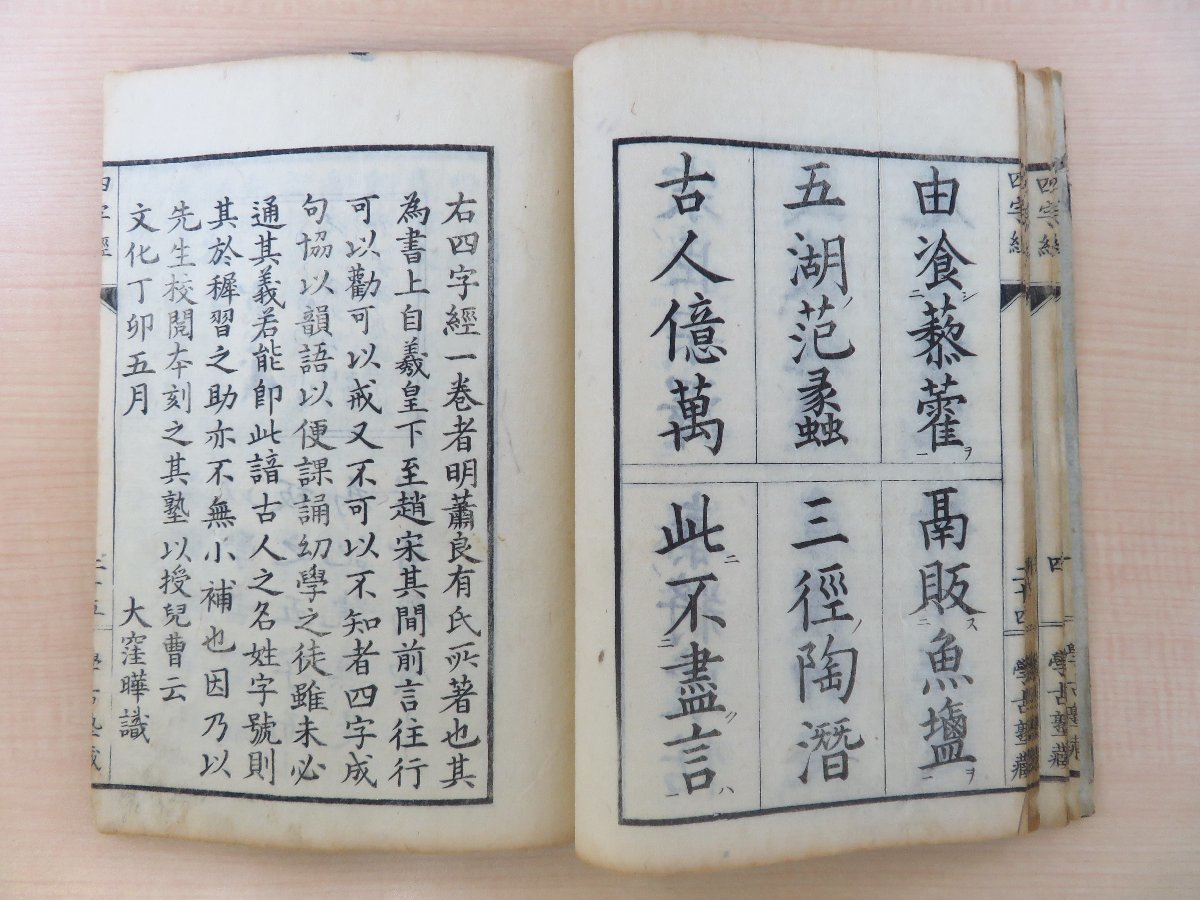 四字經
二十四
學古塾藏
由飡藜藿
鬲販魚鹽
五湖范蠡
三徑陶潛
古人億萬
此不盡言
右四字經一卷者明蕭良有氏所著也其
為書上自羲皇下至趙宋其間前言往行
可以勸可以戒又不可以不知者四字成
句協以韻語以便課誦幼學之徒雖未必
通其義若能即此諳古人之名姓字號則
其於穉習之助亦不無小補也因乃以
先生校閱本刻之其塾以授兒曹云
文化丁卯五月　大窪曄識
四字經